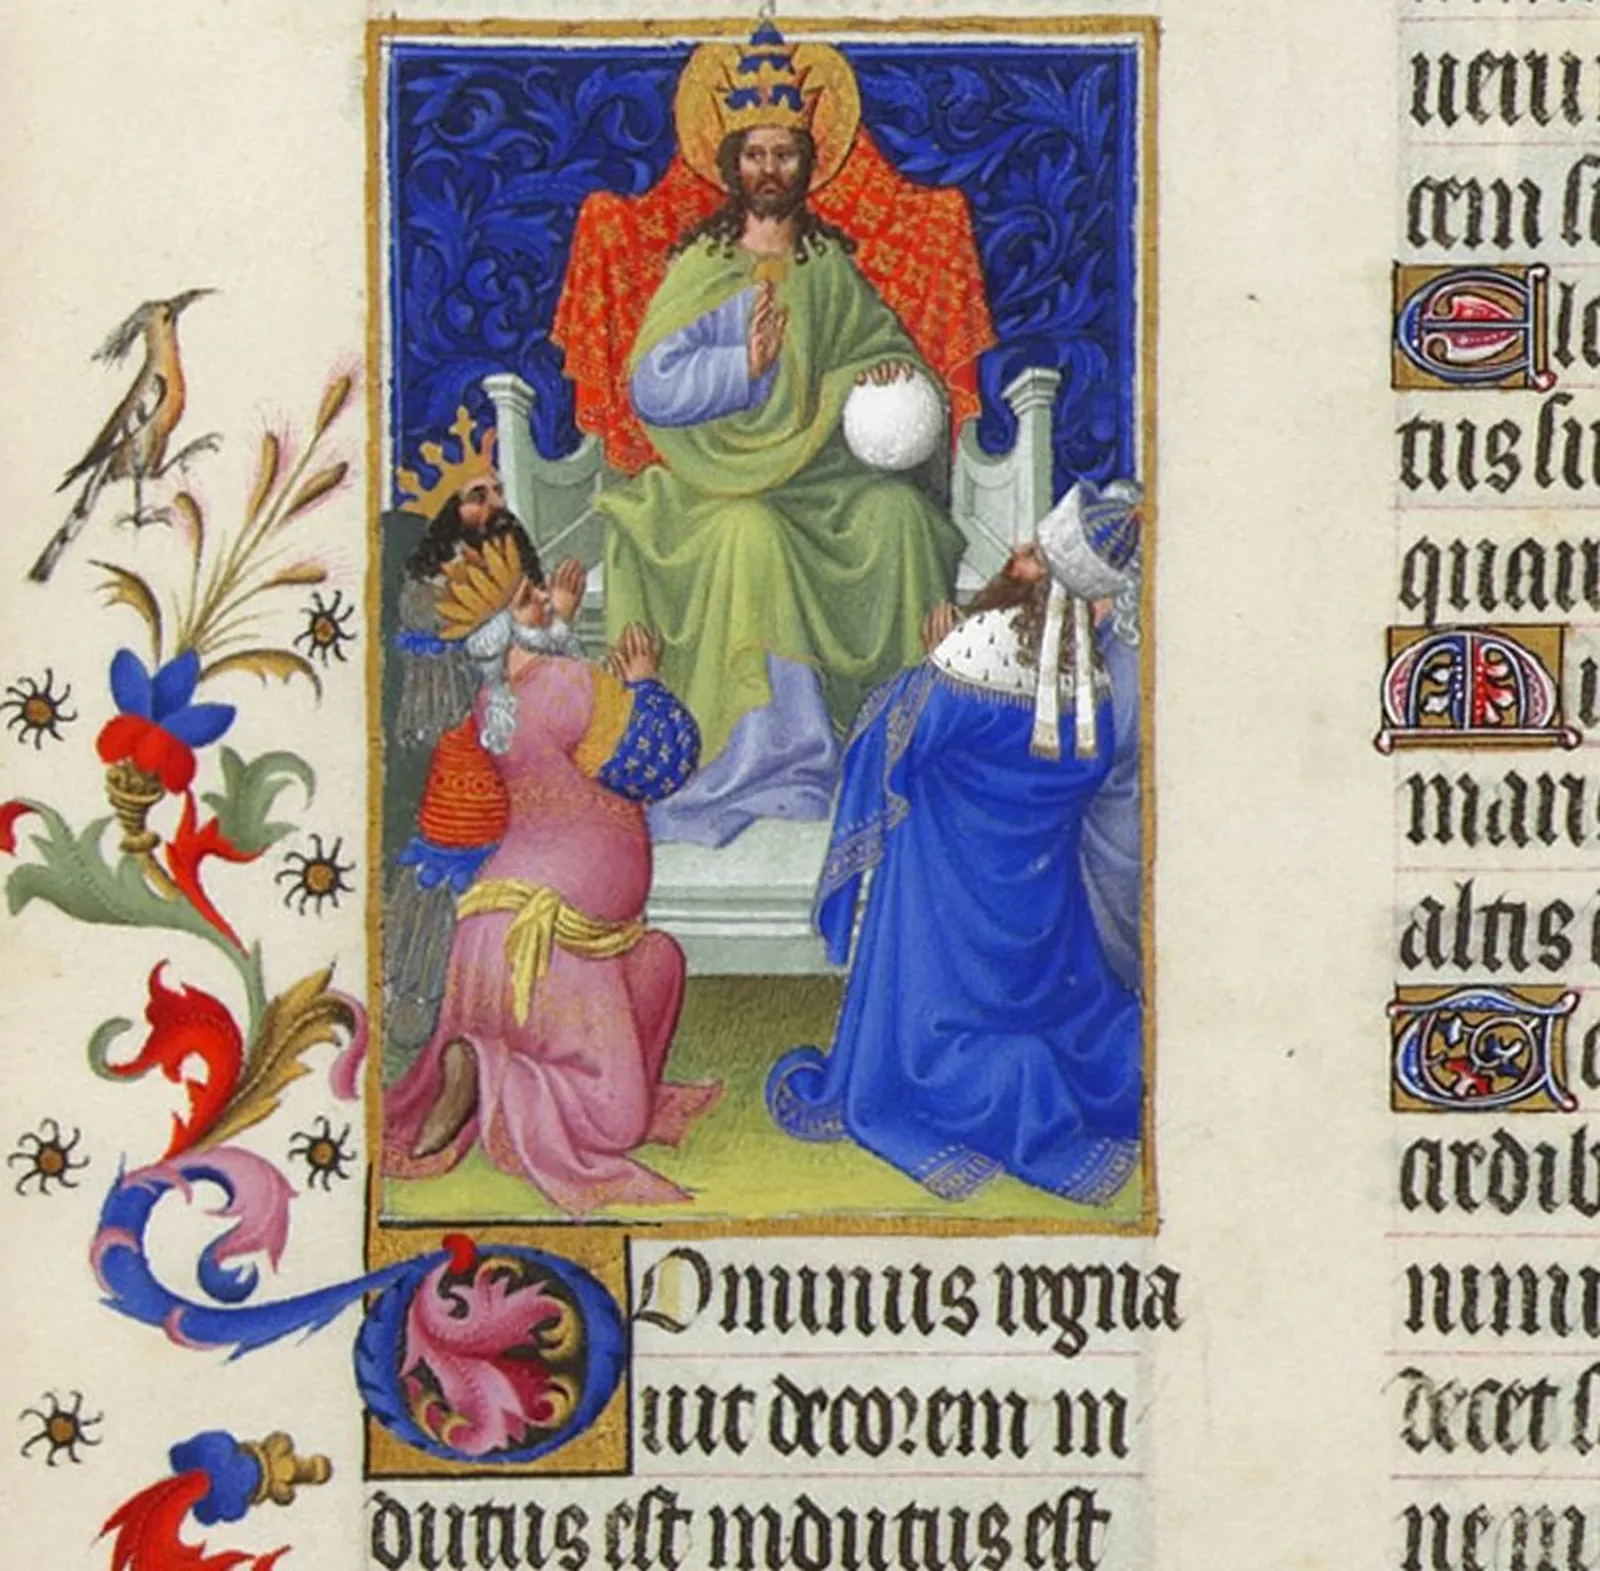 DOminus regna
uit decorem in
dutus est indutus est
cem su
Ele
tus su
quar
Mi
maris
altis d
Te
credib
nimi
decet s
nem